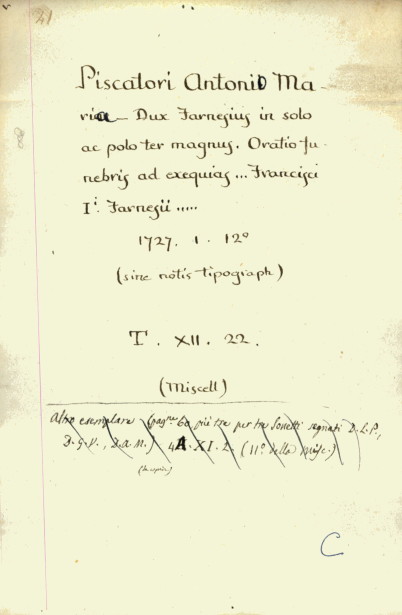 41
Piscatori Antonio Ma-
ria - Dux Farnesius in solo
ac polo ter magnus. Oratio fu-
nebris ad exequias ... Francisci
I.i Farnesii .....
1727. 1. 12º
(sine notis tipograph)
T. XII. 22.
(Miscell)
Altro esemplare (pagne 60 più tre per tre sonetti segnati D.L.P.,
D.G.V., D.A.M.) 4A.XI.2. (11º della misc.)
C